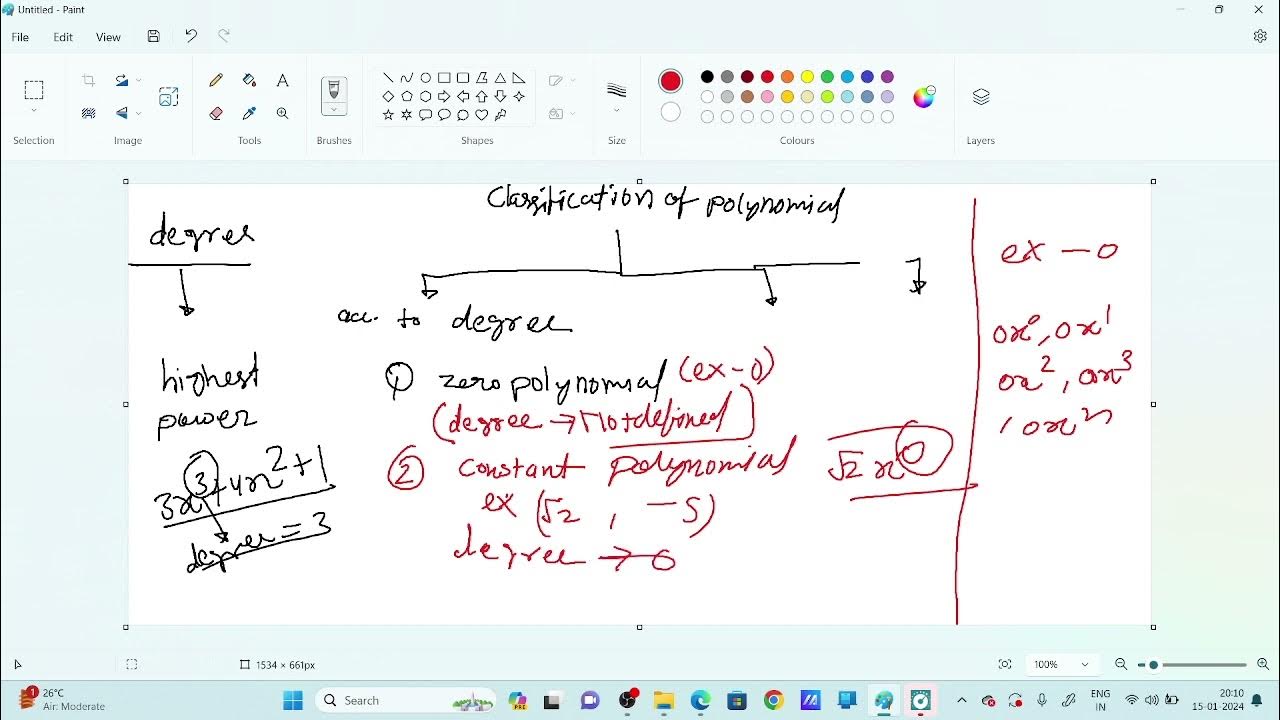 Untitled - Paint
File Edit View
Selection
Image
Tools
Brushes
Shapes
Size
Colours
Layers
Classification of polynomial
degree
highest
power
3x³+4x²+1
degree = 3
acc. to degree
① zero polynomial (ex-0)
(degree → Not defined)
② constant polynomial
ex (√2 , -5)
degree → 0
√2 x⁰
ex - 0
0x⁰, 0x¹
0x², 0x³
, 0xⁿ
1534 × 661px
100%
1
26°C
Air: Moderate
Search
ENG
IN
20:10
15-01-2024